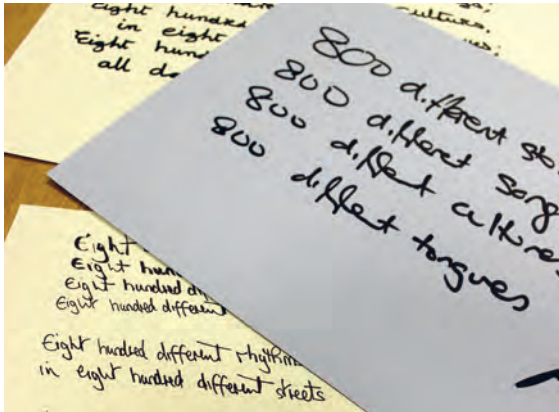 Eight hundred
culture,
in eight
Eight hund
all do
800 different sto
800 differet song
800 diffent cultures
800 diffent tongues
Eight
Eight hun
Eight hundred di
Eight hundred different
Eight hundred different rhythm
in eight hundred different streets